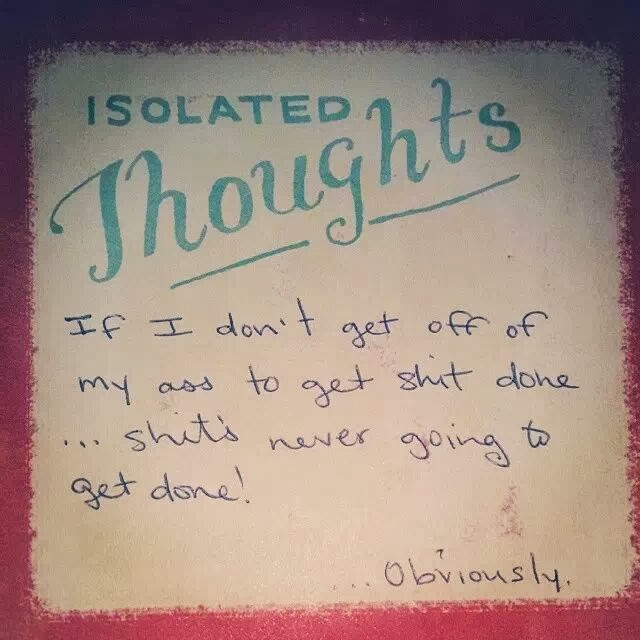 ISOLATED
Thoughts
If I don't get off of
my ass to get shit done
... shit's never going to
get done!
... Obviously.